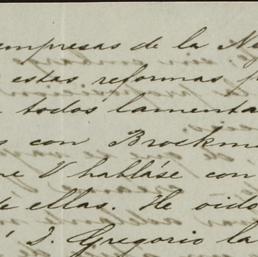 empresas de la Ne
estas reformas p
todos lamenta
con Brockm
re V hablase con
de ellas. He oido
á D. Gregorio la